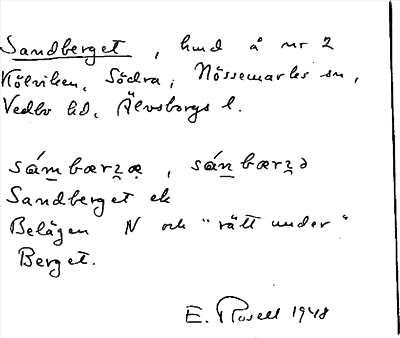 Sandberget, hmd å nr 2
Kölviken, Södra, Nössemarks sn,
Vedbo hd, Älvsborgs l.
sámbærꝛæ, sánbærꝛə
Sandberget ek
Belägen N och "rätt under"
Berget.
E. Rosell 1948